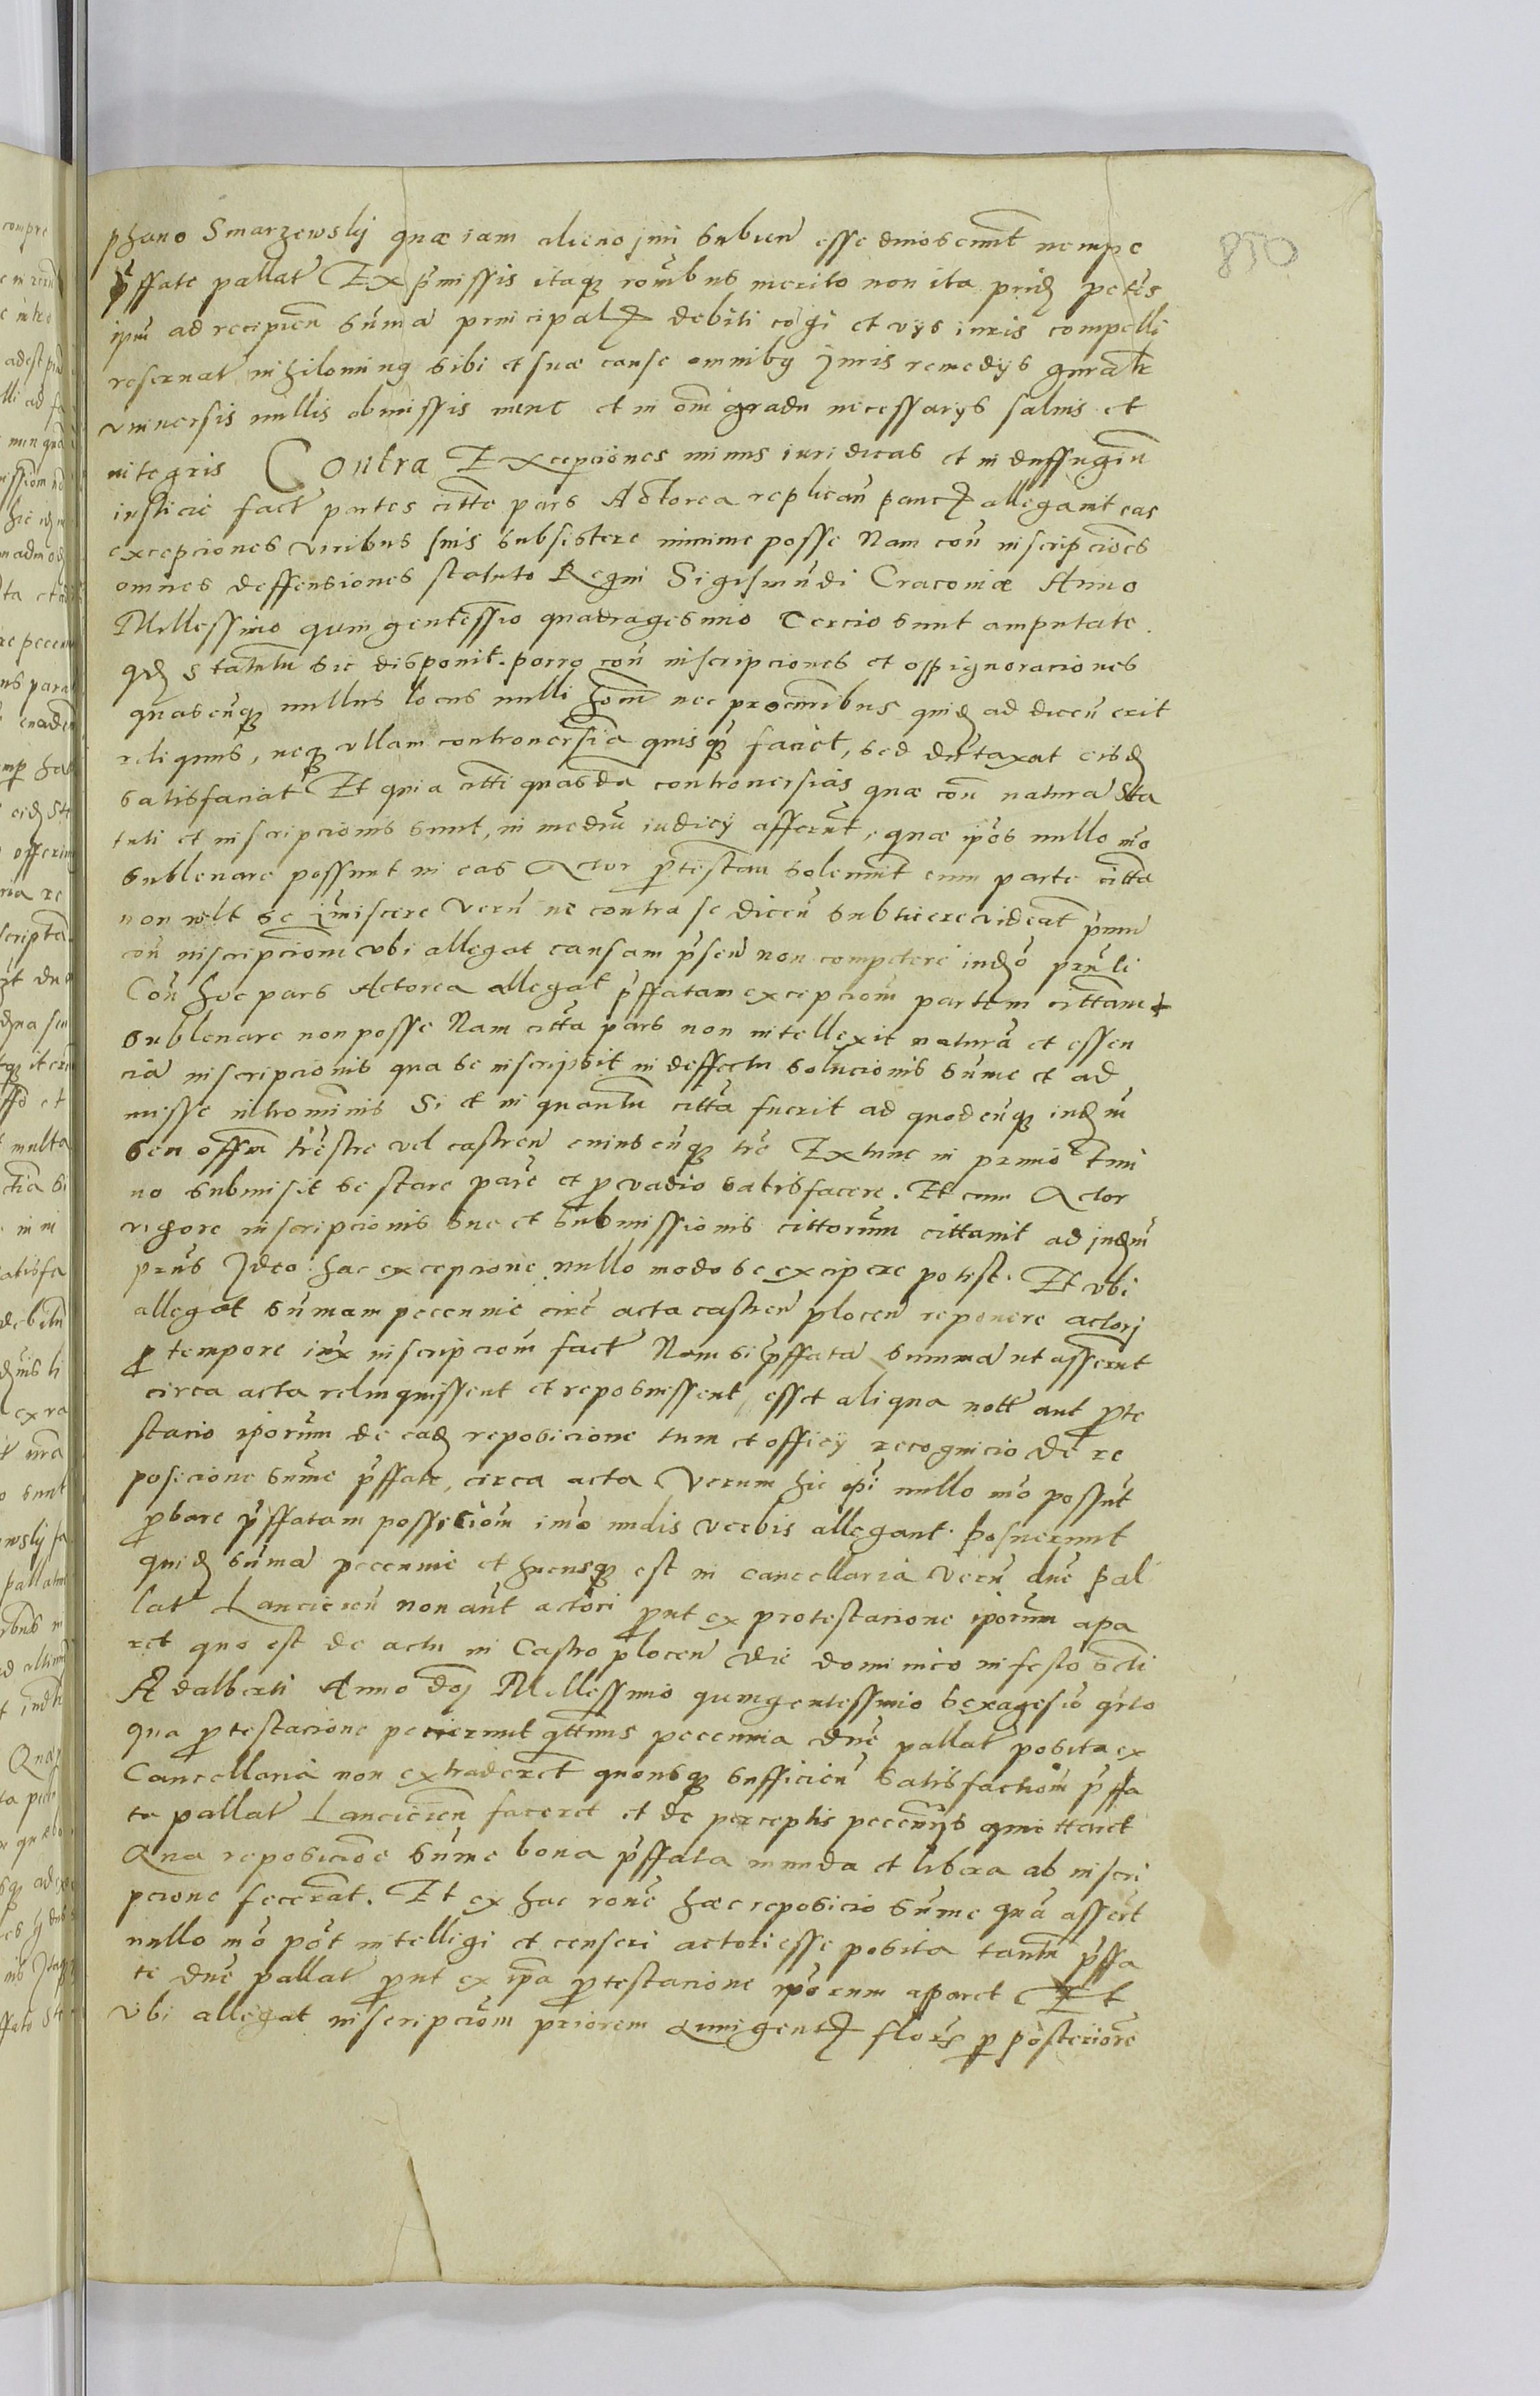 850
phano Smarzewskij quæ iam alieno juri subien esse dinoscunt nempe
pffate pallat Ex pmissis itaq ronibus merito non ita prid petes
ipm ad recipien suma principal debiti cogi et vys iuris compelli
reservat nihilominus sibi et suæ cause omnibus Juris remedys gnralr
universis nullis obmissis nunc et in omi gradu necessarys salvis et
integris Contra Excepciones minus iuridicas et in duffugiu
iusticie fact partes citte pars Actorea replican panc allegavit eas
excepciones viribus suis subsistere minime posse Nam con inscripciões
omnes deffensiones statuto Regni Sigismundi Cracoviæ Anno
Millessimo quingentessio quadragesimo Tercio sunt amputate.
qd statutu sic disponit. porro con inscripciones et oppignoraciones
quascunq nullus locus nulli hoim nec procuribus quid ad dicen erit
reliquus, neq ullam controversia quisq faciet, sed dutaxat eisd
satisfaciat Et quia citti quasda controversias quæ con natura Sta
tuti et inscripcionis sunt, in mediu iudicy afferut, quæ ipos nullo mo
sublevare possunt in eas Actor ptestan solennit cum parte citta
non vult se imiscere Veru ne contra se dicen subticere videat pmu
con inscripciom ubi allegat causam psen non competere indo pruli
Con hoc pars Actorea allegat pffatam excepciom partem cittam
sublevare non posse Nam citta pars non intellexit natura et essen
cia inscripcionis qua se inscripsit in deffectu solucionis sume et ad
misse introminis Si et in quantu citta fuerit ad quodcunq indm
seu offm trestre vel castren cuiuscunq tre Extunc in primo tmi
no submisit se stare pare et p vadio satisfacere. Et cum Actor
vigore inscripcionis sue et submissionis cittorum cittavit ad judm
prns Ideo hac excepcione nullo modo se excipere potest. Et ubi
allegat sumam pecunie circ acta castren plocen reponere actorj
p tempore iux inscripciom fact Nam si pffata summa ut asserut
circa acta relinquissent et reposuissent, esset aliqua nott aut pte
stacio iporum de ead reposicione tum et officij recognicio de re
posicione sume pffate, circa acta Verum hic ipi nullo mo possut
pbare pffatam possiciom imo nudis verbis allegant. Posuerunt
quid suma pecunie et hucusq est in cancellaria Veru dne pal
lat Lancicien non aut actori put ex protestacione iporum apa
ret quo est de actu in Castro plocen die dominico in festo scti
Adalberti Anno Dnj Millessimo quingentessimo sexagesio qrto
qua ptestacione pecierunt qttinus pecunia dne pallat posita ex
Cancellaria non extraderet quousq sufficien satisfactiom pffa
ta pallat Lancicien faceret et de perceptis pecunys quittaret
Qua reposicioe sume bona pffata munda et libera ab inscri
pcione fecerat. Et ex hac rone hæc reposicio sume qua assert
nullo mo pot intellegi et censeri actori esse posita tantu pffa
te dne pallat put ex ipa ptestacione iporum aparet Et
ubi allegat inscripciom priorem quingent flors p posteriore